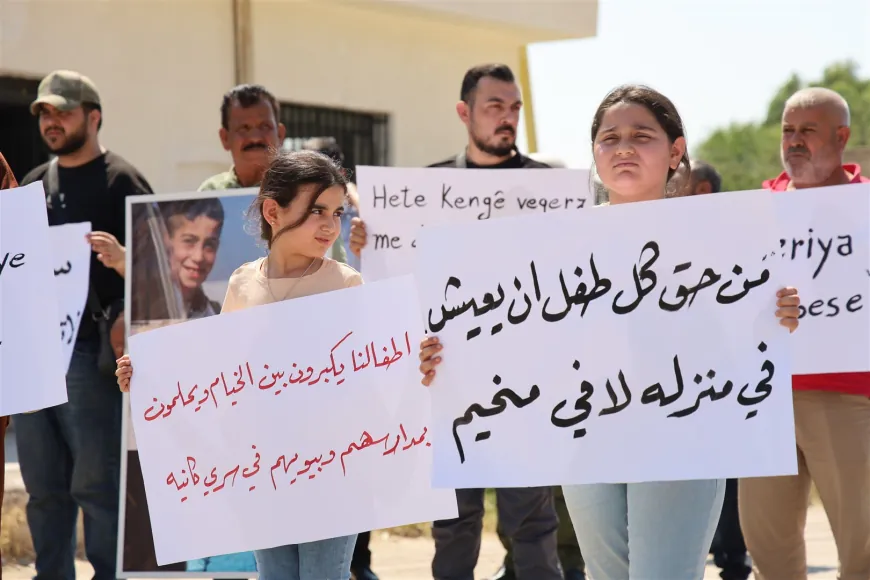 ye
Hete Kengê veqerz
me
eriya
bese
اطفالنا يكبرون بين الخيام ويحلمون
بمدارسهم وبيوتهم في سري كانيه
من حق كل طفل ان يعيش
في منزله لا في مخيم